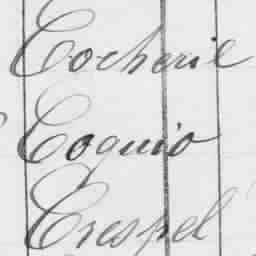 Cocherie
Coquio
Crespel